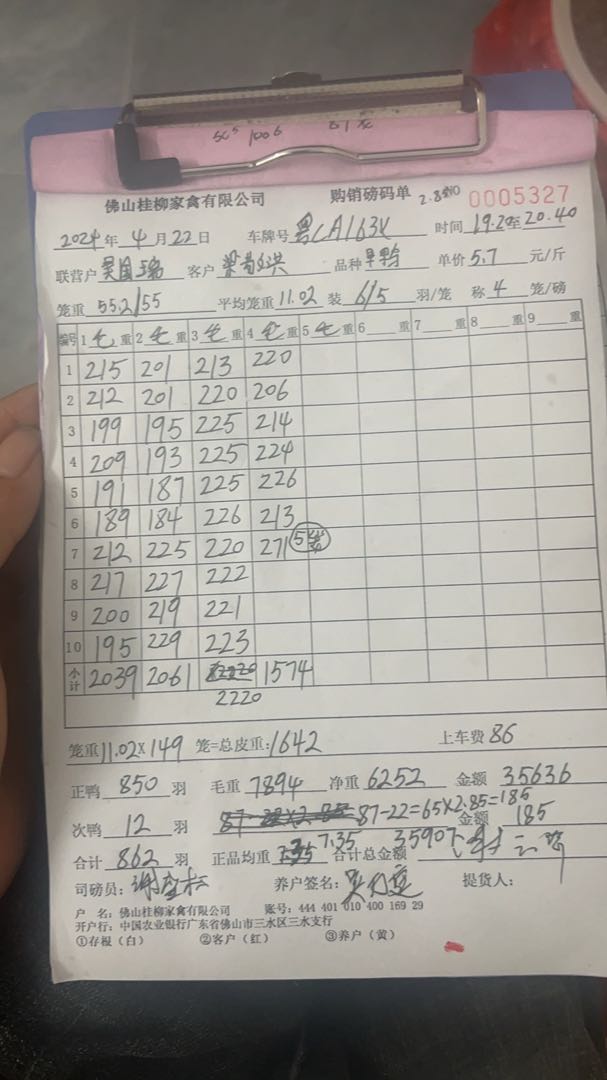 1006
佛山桂柳家禽有限公司 购销磅码单 0005327
2024年4月22日 车牌号 粤CA163V 时间 19.20至20.40
联营户 客户 品种 单价 5.7 元/斤
笼重 55.2/55 平均笼重 11.02 装 6/5 羽/笼 称 4 笼/磅
编号 1 毛重 2 毛重 3 毛重 4 毛重 5 毛重 6 重 7 重 8 重 9 重
1 215 201 213 220
2 212 201 220 206
3 199 195 225 214
4 209 193 225 224
5 191 187 225 226
6 189 184 226 213
7 212 225 220 271 5
8 217 227 222
9 200 219 221
10 195 229 223
小计 2039 2061 1574
2220
笼重 11.02×149 笼=总皮重: 1642 上车费 86
正鸭 850 羽 毛重 7894 净重 6252 金额 35636
次鸭 12 羽 87-22=65×2.85=185 金额 185
合计 862 羽 正品均重 7.35 合计总金额 35907
司磅员: 养户签名: 提货人:
户 名: 佛山桂柳家禽有限公司 账号: 444 401 010 400 169 29
开户行: 中国农业银行广东省佛山市三水区三水支行
①存根(白) ②客户(红) ③养户(黄)